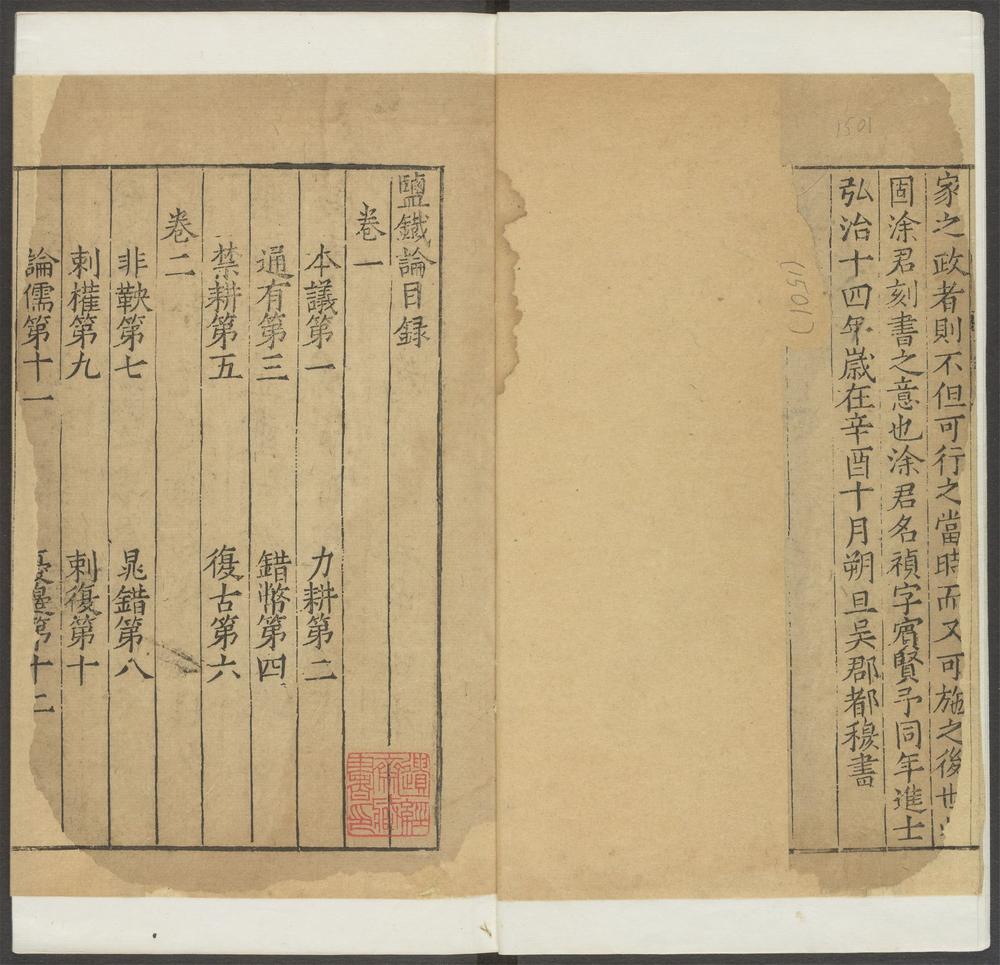 家之政者則不但可行之當時而又可施之後世
固涂君刻書之意也涂君名禎字賔賢予同年進士
弘治十四年歲在辛酉十月朔旦吴郡都穆書
1501
(1501)
鹽鐵論目録
卷一
本議第一 力耕第二
通有第三 錯幣第四
禁耕第五 復古第六
卷二
非鞅第七 晁錯第八
刺權第九 刺復第十
論儒第十一 憂邊第十二
遺經
齋
書印